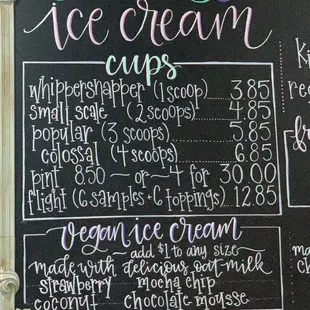 ice cream
cups
whippersnapper (1 scoop) 3.85
small scale (2 scoops) 4.85
popular (3 scoops) 5.85
colossal (4 scoops) 6.85
pint 8.50 — or — 4 for 30.00
flight (6 samples + 6 toppings) 12.85
vegan ice cream
— add $1 to any size —
made with delicious oat-milk
strawberry mocha chip
coconut chocolate mousse